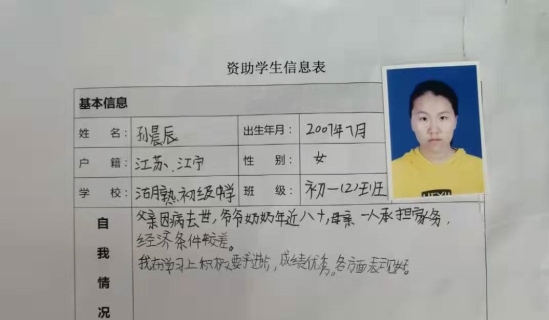 资助学生信息表
基本信息
姓 名： 孙晨辰 出生年月： 2007年7月
户 籍： 江苏、江宁 性 别： 女
学 校： 初级中学 班 级： 初一(2)班
自我情况
父亲因病去世，爷爷奶奶年近八十，母亲一人承担家务，
经济条件较差。
我在学习上积极要求进步，成绩优秀。各方面表现好。